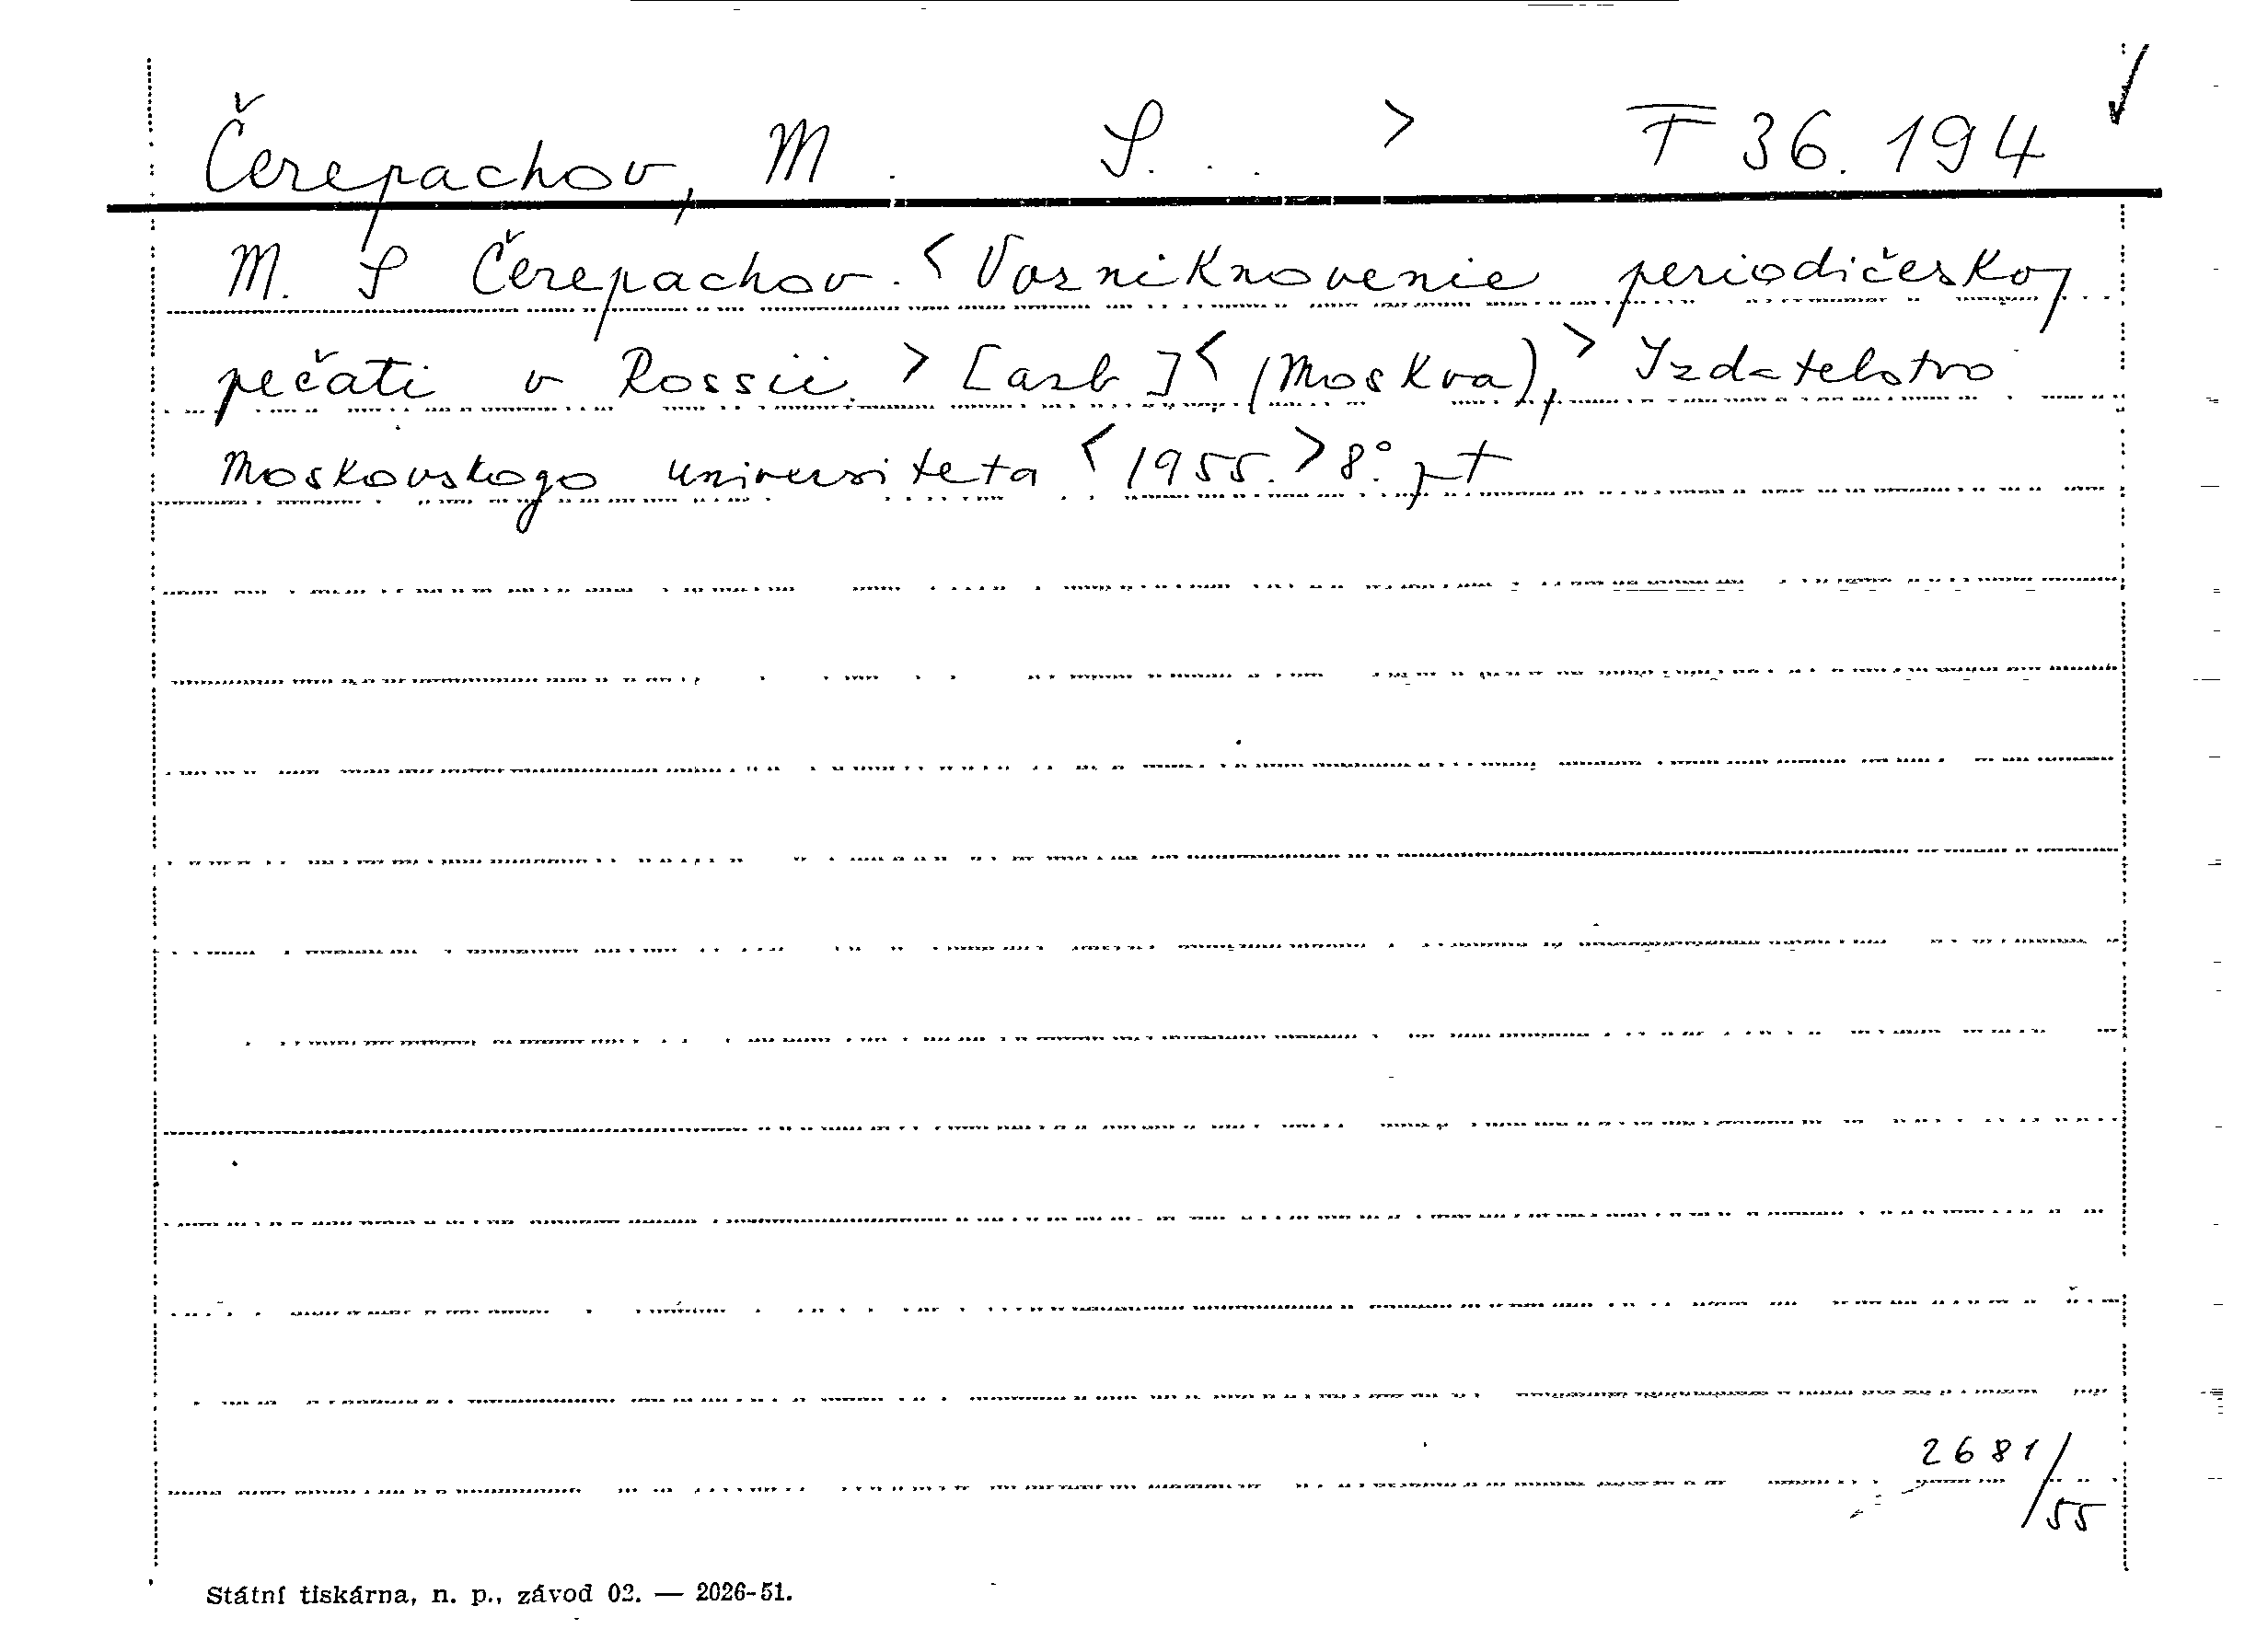 Čerepachov, M. S. . . > T 36.194
M. S Čerepachov. < Vozniknovenie periodičeskoj
pečati v Rossii. > [azb] < (Moskva), > Izdatelstvo
Moskovskogo universiteta < 1955. > 8°.
2681/55
Státní tiskárna, n. p., závod 02. — 2026-51.